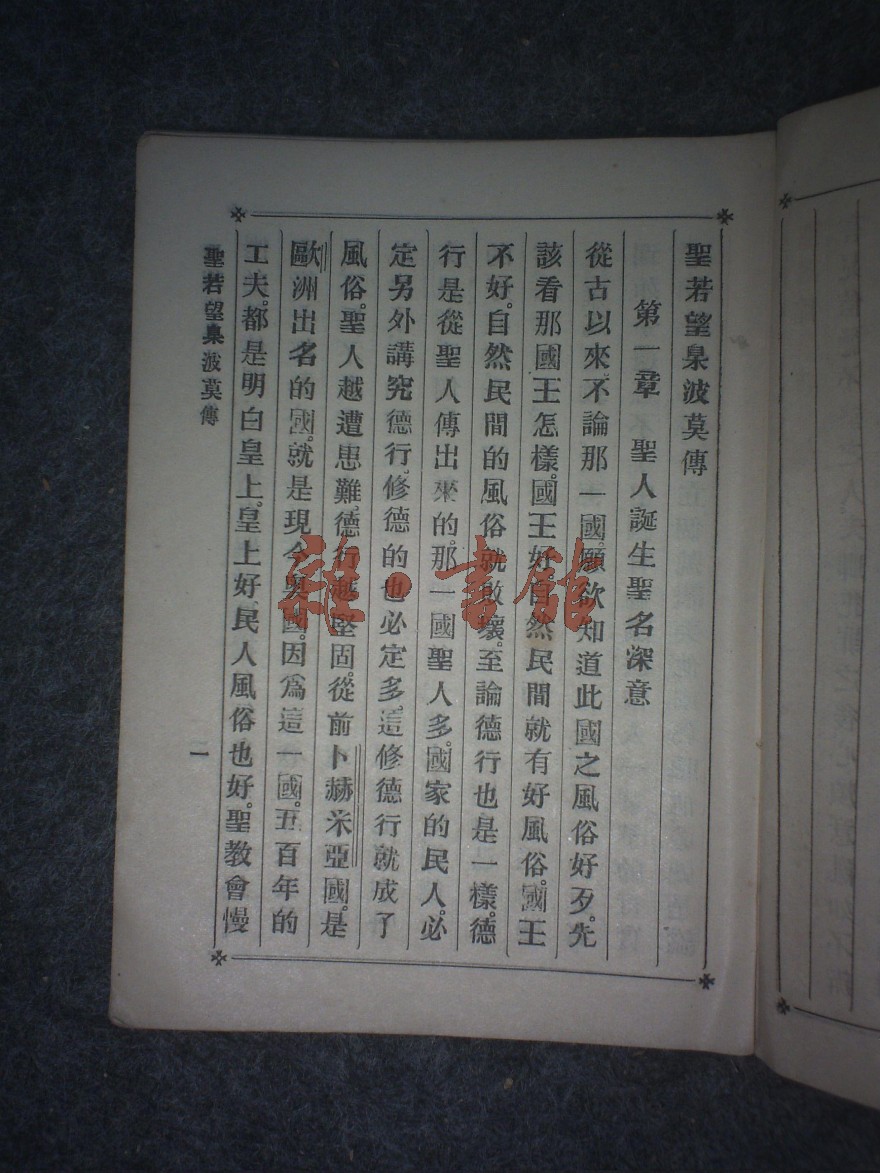 聖若望臬波莫傳
第一章　聖人誕生聖名深意
從古以來、不論那一國、願欲知道此國之風俗好歹、先
該看那國王怎樣。國王好、自然民間就有好風俗。國王
不好、自然民間的風俗就敗壞。至論德行也是一樣。德
行是從聖人傳出來的。那一國聖人多、國家的民人、必
定另外講究德行、修德的也必定多。這修德行就成了
風俗。聖人越遭患難、德行越堅固。從前卜赫米亞國、是
歐洲出名的國。就是現今奧國。因爲這一國。五百年的
工夫。都是明白皇上。皇上好、民人風俗也好。聖教會慢
聖若望臬波莫傳
一
雜·書館